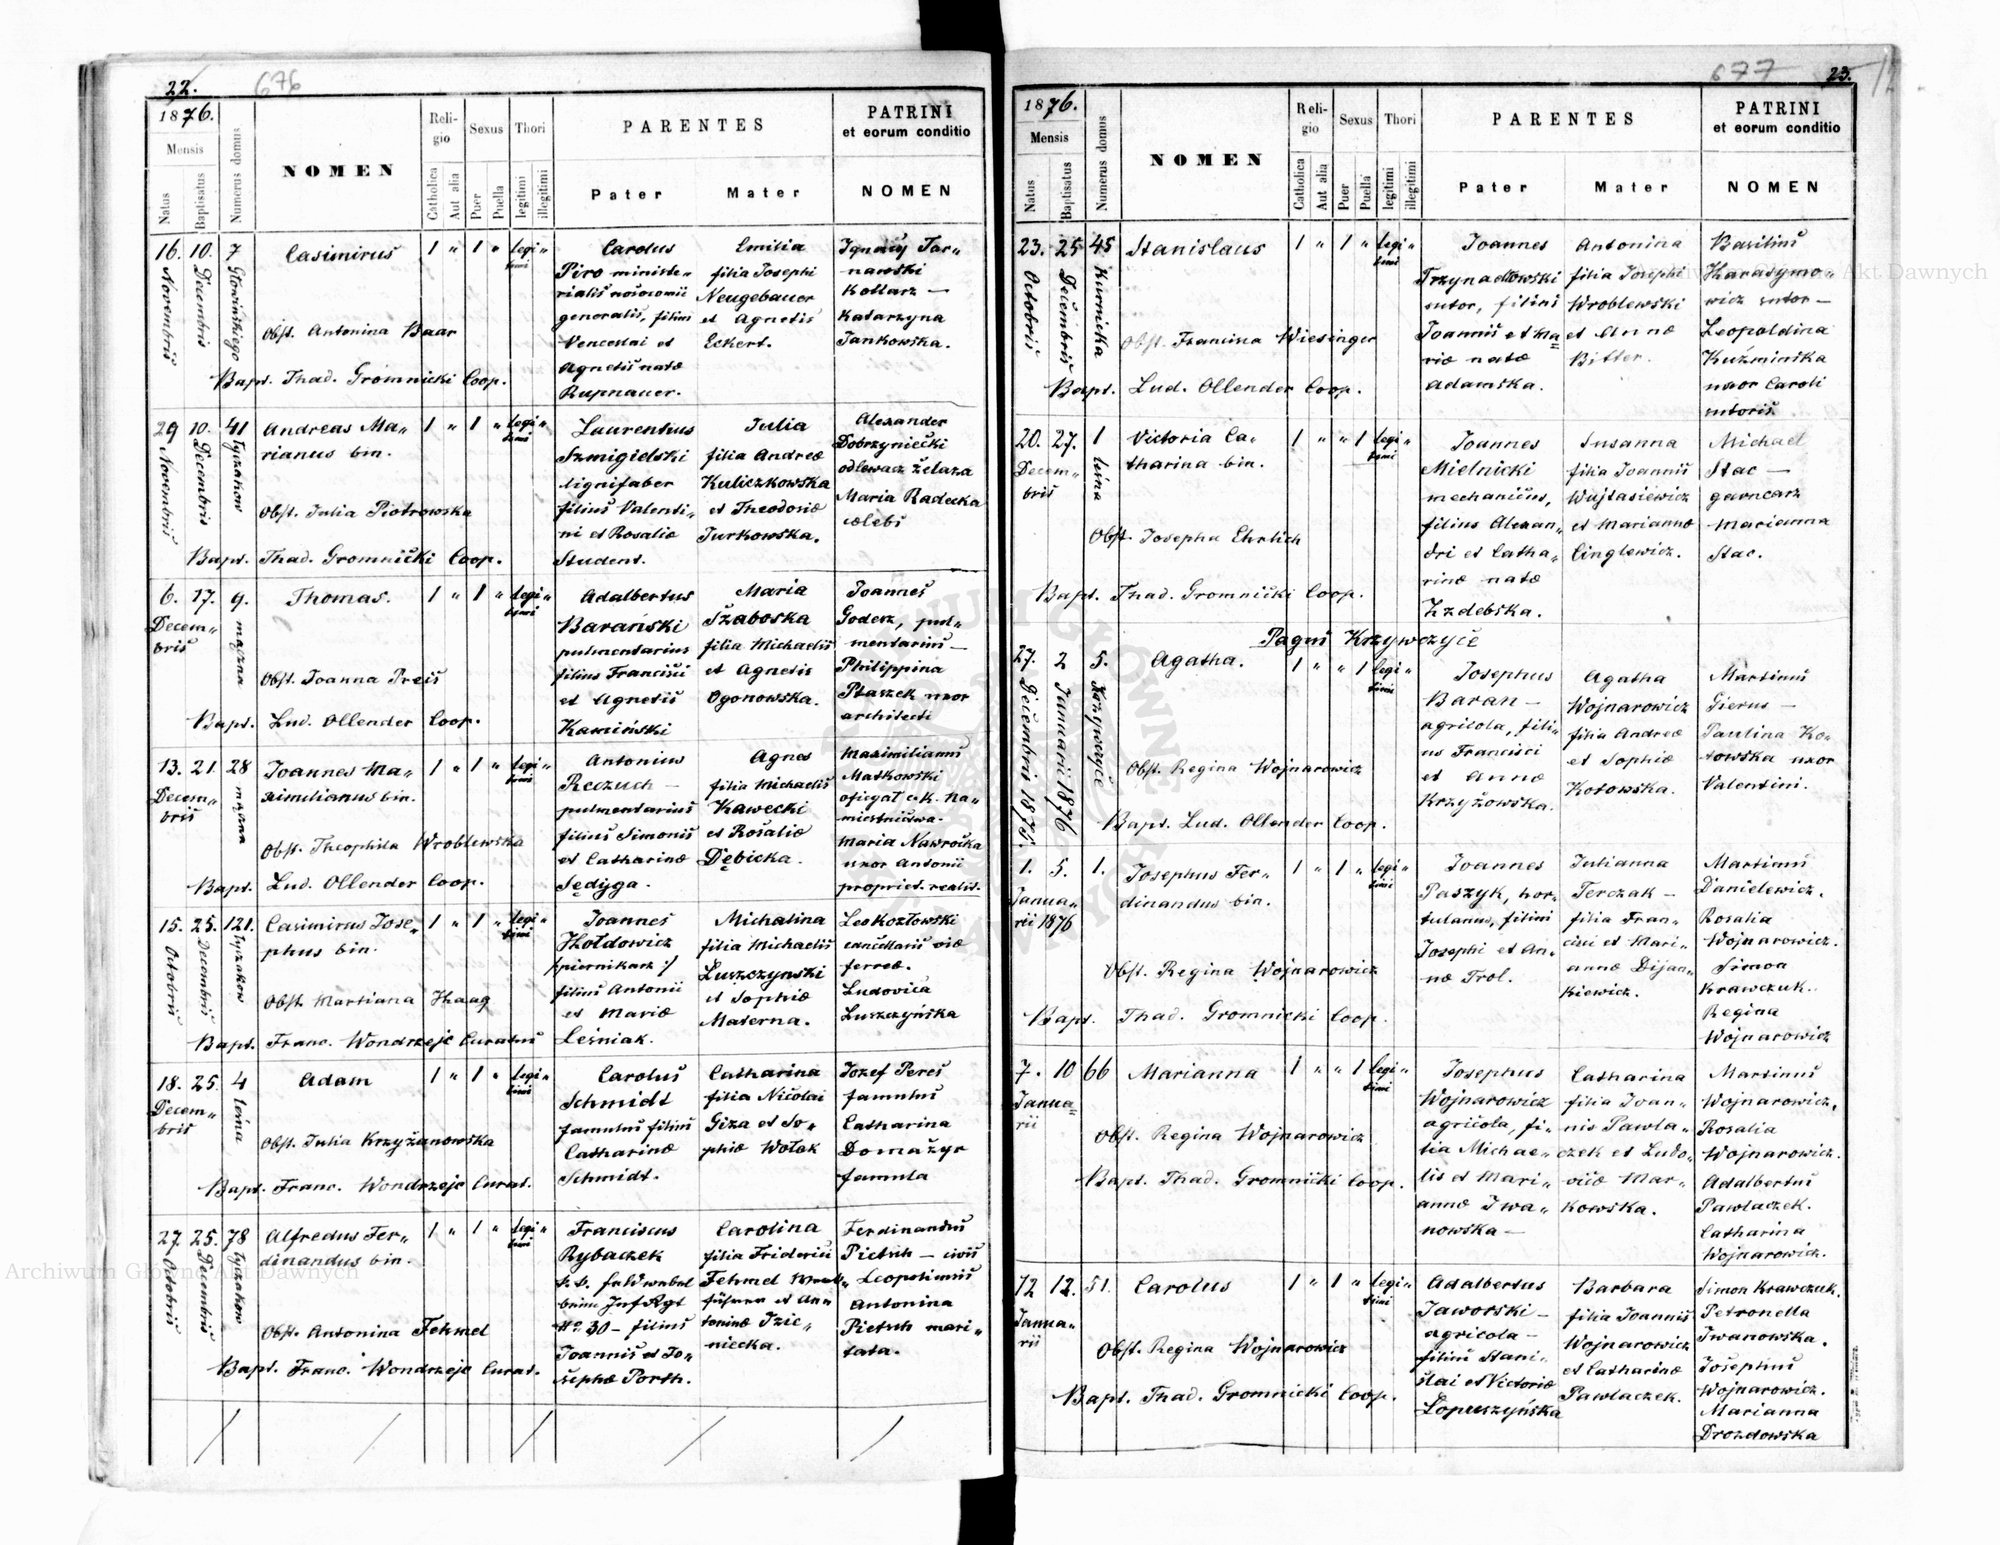 22. 676
1876.
Mensis
Natus
Baptisatus
Numerus domus
NOMEN
Religio
Catholica
Aut alia
Sexus
Puer
Puella
Thori
legitimi
illegitimi
PARENTES
Pater
Mater
PATRINI
et eorum conditio
NOMEN
16. Novembris
10. Decembris
7 Głowińskiego
Casimirus
Obst. Antonina Baar
Bapt. Thad. Gromnicki Coop.
1 " 1 " legi "
timi
Carolus
Piro ministe-
rialis nosocomii
generalis, filius
Venceslai et
Agnetis natæ
Rupnauer.
Emilia
filia Josephi
Neugebauer
et Agnetis
Eckert.
Ignacy Tar-
nawski
Kotlarz —
Katarzyna
Jankowska.
29 Novembris
10. Decembris
41 Łyczaków
Andreas Ma„
rianus bin.
Obst. Julia Piotrowska
Bapt. Thad. Gromnicki Coop.
1 " 1 " legi "
timi
Laurentius
Szmigielski
lignifaber
filius Valenti„
ni et Rosaliæ
Student.
Julia
filia Andreæ
Kuliczkowska
et Theodosiæ
Jurkowska.
Alexander
Dobrzyniecki
odlewacz żelaza
Maria Radecka
cælebs
6. Decem„
bris
17. 9. mączna
Thomas.
Obst. Joanna Preis
Bapt. Lud. Ollender Coop.
1 " 1 " legi "
timi
Adalbertus
Barański
pulmentarius
filius Francisci
et Agnetis
Kamiński
Maria
Szaboska
filia Michaelis
et Agnetis
Ogonowska.
Joannes
Goderz, pul„
mentarius —
Philippina
Ptaszek uxor
architecti
13. Decem„
bris
21. 28 mączna
Joannes Ma„
ximilianus bin.
Obst. Theophila Wroblewska
Bapt. Lud. Ollender Coop.
1 " 1 " legi "
timi
Antonius
Reczuch —
pulmentarius
filius Simonis
et Catharinæ
Sędyga.
Agnes
filia Michaelis
Kawecki
et Rosaliæ
Dębicka.
Maximilianus
Matkowski
oficyał c.k. Na„
miestnictwa.
Maria Nawrocka
uxor Antonii
propriet. realit.
15. Octobris
25. Decembris
121. Łyczaków
Casimirus Jose„
phus bin.
Obst. Martiana Haag
Bapt. Franc. Wondrzejc Curatus
1 " 1 " legi "
timi
Joannes
Hołdowicz
/: piernikarz :/
filius Antonii
et Mariæ
Leśniak.
Michalina
filia Michaelis
Łuszczynski
et Sophiæ
Materna.
Leo Kozłowski
viæ
ferreæ.
Ludovica
Łuszczyńska
18. Decem„
bris
25. 4 leśna
Adam
Obst. Julia Krzyżanowska
Bapt. Franc. Wondrzejc Curat.
1 " 1 " legi "
timi
Carolus
Schmidt
famulus filius
Catharinæ
Schmidt.
Catharina
filia Nicolai
Giza et So„
phiæ Wołok
Jozef Peres
famulus
Catharina
Domażyr
famula
27. Octobris
25. Decembris
78 Łyczaków
Alfredus Fer„
dinandus bin.
Obst. Antonina Fehmel
Bapt. Franc. Wondrzejc Curat.
1 " 1 " legi "
timi
Franciscus
Rybaczek
beim Inf Rgt
No 30 — filius
Joannis et Jo„
sephæ Porth.
Carolina
filia Friderici
Fehmel
führer et An„
toninæ Izie„
niecka.
Ferdinandus
Pietsch — civis
Leopoliensis
Antonina
Pietsch mari„
tata.
677 23.
1876.
Mensis
Natus
Baptisatus
Numerus domus
NOMEN
Religio
Catholica
Aut alia
Sexus
Puer
Puella
Thori
legitimi
illegitimi
PARENTES
Pater
Mater
PATRINI
et eorum conditio
NOMEN
23. Octobris
25 Decembris
45 Kurnicka
Stanislaus
Obst. Francisca Wiesinger
Bapt. Lud. Ollender Coop.
1 " 1 " legi "
timi
Joannes
Trzynadlowski
sutor, filius
Joannis et Ma„
riæ natæ
Adamska.
Antonina
filia Josephi
Wroblewski
et Annæ
Bitter.
Basilius
Harasymo„
wicz sutor —
Leopoldina
Kuźmińska
uxor Caroli
sutoris.
20. Decem„
bris
27. 1 leśna
Victoria Ca„
tharina bin.
Obst. Josepha Ehrlich
Bapt. Thad. Gromnicki Coop.
1 " " 1 legi "
timi
Joannes
Mielnicki
mechanicus,
filius Alexan„
dri et Catha„
rinæ natæ
Zzdebska.
Susanna
filia Joannis
Wujtasiewicz
et Mariannæ
Cinglewicz.
Michael
Stac —
garncarz
Marianna
Stac.
Pagus Krzywczyce
27. Decembris 1875.
2 Januarii 1876
5. Krzywczyce
Agatha.
Obst. Regina Wojnarowicz
Bapt. Lud. Ollender Coop.
1 " " 1 legi "
timi
Josephus
Baran —
agricola, fili„
us Francisci
et Annæ
Krzyżowska.
Agatha
Wojnarowicz
filia Andreæ
et Sophiæ
Kotowska.
Martinus
Gierus —
Paulina Ko„
towska uxor
Valentini.
1. Janua„
rii 1876
5. 1.
Josephus Fer„
dinandus bin.
Obst. Regina Wojnarowicz
Bapt. Thad. Gromnicki Coop.
1 " 1 " legi "
timi
Joannes
Paszyk, hor„
tulanus, filius
Josephi et An„
næ Trol.
Julianna
Terczak —
filia Fran„
cisci et Mari„
annæ Dijan„
kiewicz.
Martinus
Danielewicz.
Rosalia
Wojnarowicz.
Simon
Krawczuk.
Regina
Wojnarowicz
7. Janua„
rii
10 66
Marianna
Obst. Regina Wojnarowicz
Bapt. Thad. Gromnicki Coop.
1 " " 1 legi "
timi
Josephus
Wojnarowicz
agricola, fi„
lia Michae„
lis et Mari„
annæ Iwa„
nowska —
Catharina
filia Joan„
nis Pawla„
czek et Ludo„
vicæ Mar„
kowska.
Martinus
Wojnarowicz.
Rosalia
Wojnarowicz.
Adalbertus
Pawlaczek.
Catharina
Wojnarowicz.
12 Janua„
rii
12. 51.
Carolus
Obst. Regina Wojnarowicz
Bapt. Thad. Gromnicki Coop.
1 " 1 " legi "
timi
Adalbertus
Jaworski —
agricola —
filius Stani„
slai et Victoriæ
Łopuszyńska
Barbara
filia Joannis
Wojnarowicz
et Catharinæ
Pawlaczek.
Simon Krawczuk.
Petronella
Iwanowska.
Josephus
Wojnarowicz.
Marianna
Drozdowska
Archiwum Główne Akt Dawnych
Archiwum Główne Akt Dawnych